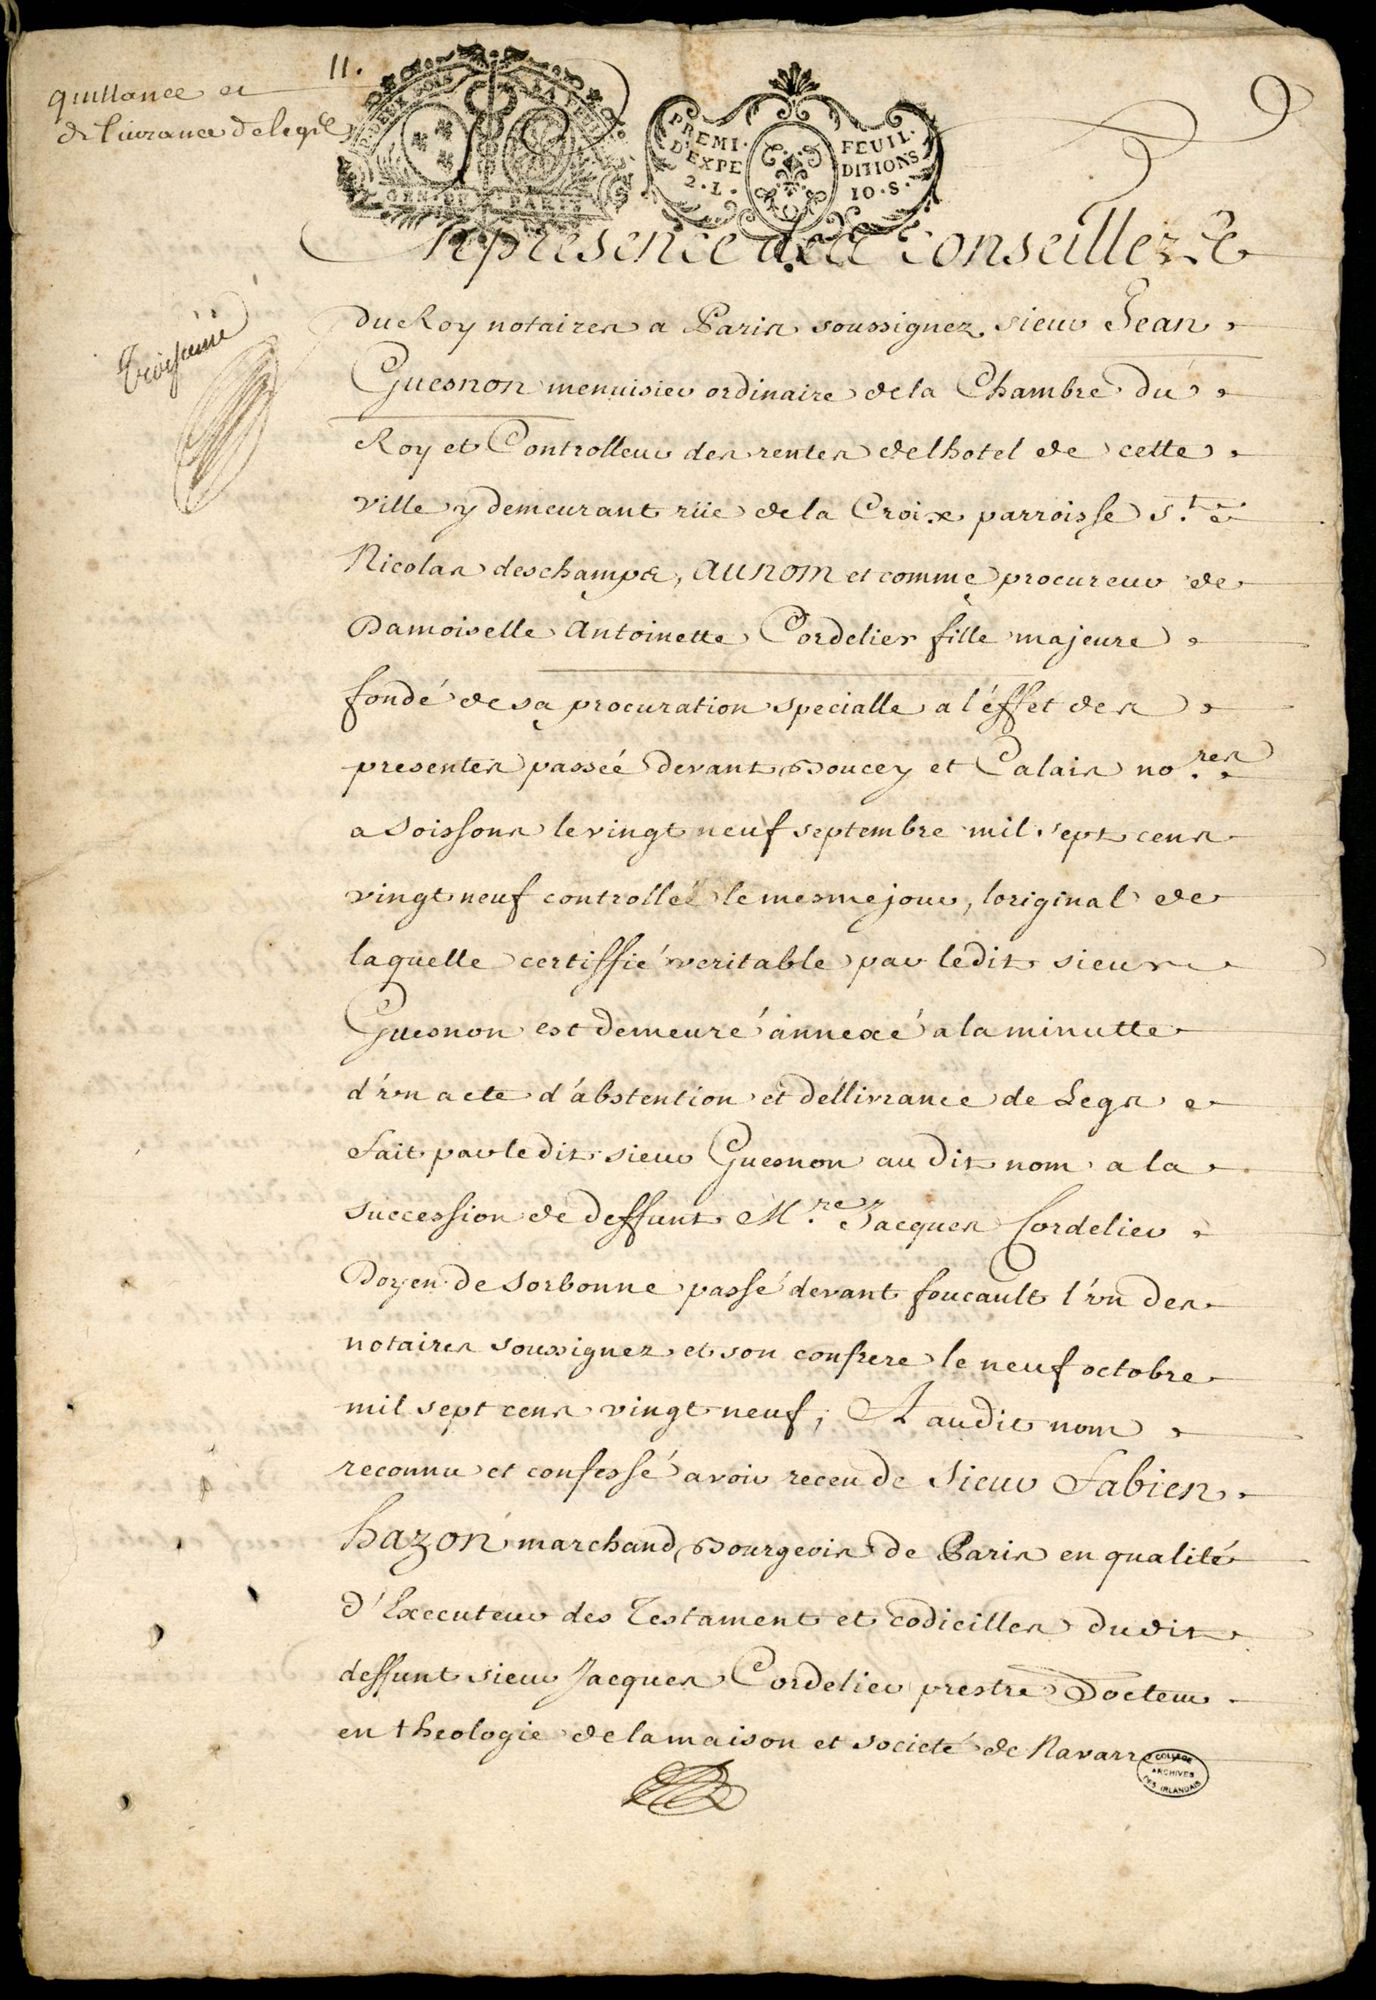 11.
quittance et
delivrance de legs
DEUX SOLS LA FEUIL
GEN. DE PARIS
PREMI. FEUIL.
D'EXPE DITIONS
2. L. 10. S.
En presence des Conseillers
du Roy notaires a Paris soussignez sieur Jean
Guesnon menuisier ordinaire de la Chambre du
Roy et Controlleur des rentes de lhotel de cette
ville y demeurant rüe de la Croix parroisse St.
Nicolas deschamps, au nom et comme procureur de
Damoiselle Antoinette Cordelier fille majeure
fondé de sa procuration specialle a l'éffet des
presentes passée devant Boucey et Calais nores.
a Soissons le vingt neuf septembre mil sept cens
vingt neuf controllé le mesme jour, loriginal de
laquelle certiffié veritable par ledit sieur
Guesnon est demeuré annexé a la minutte
d'vn acte d'abstention et déllivrance de Legs
fait par ledit sieur Guesnon audit nom a la
succession de deffunt Mre. Jacques Cordelier
Doyen de Sorbonne passé devant foucault l'vn des
notaires soussignez et son confrere le neuf octobre
mil sept cens vingt neuf; A audit nom
reconnu et confessé avoir receu de sieur Fabien
hazon marchand Bourgeois de Paris en qualité
d'Executeur des Testament et codicilles dudit
deffunt sieur Jacques Cordelier prestre Docteur
en theologie de la maison et societé de Navarre
Troisieme
COLLEGE
ARCHIVES
DES IRLANDAIS